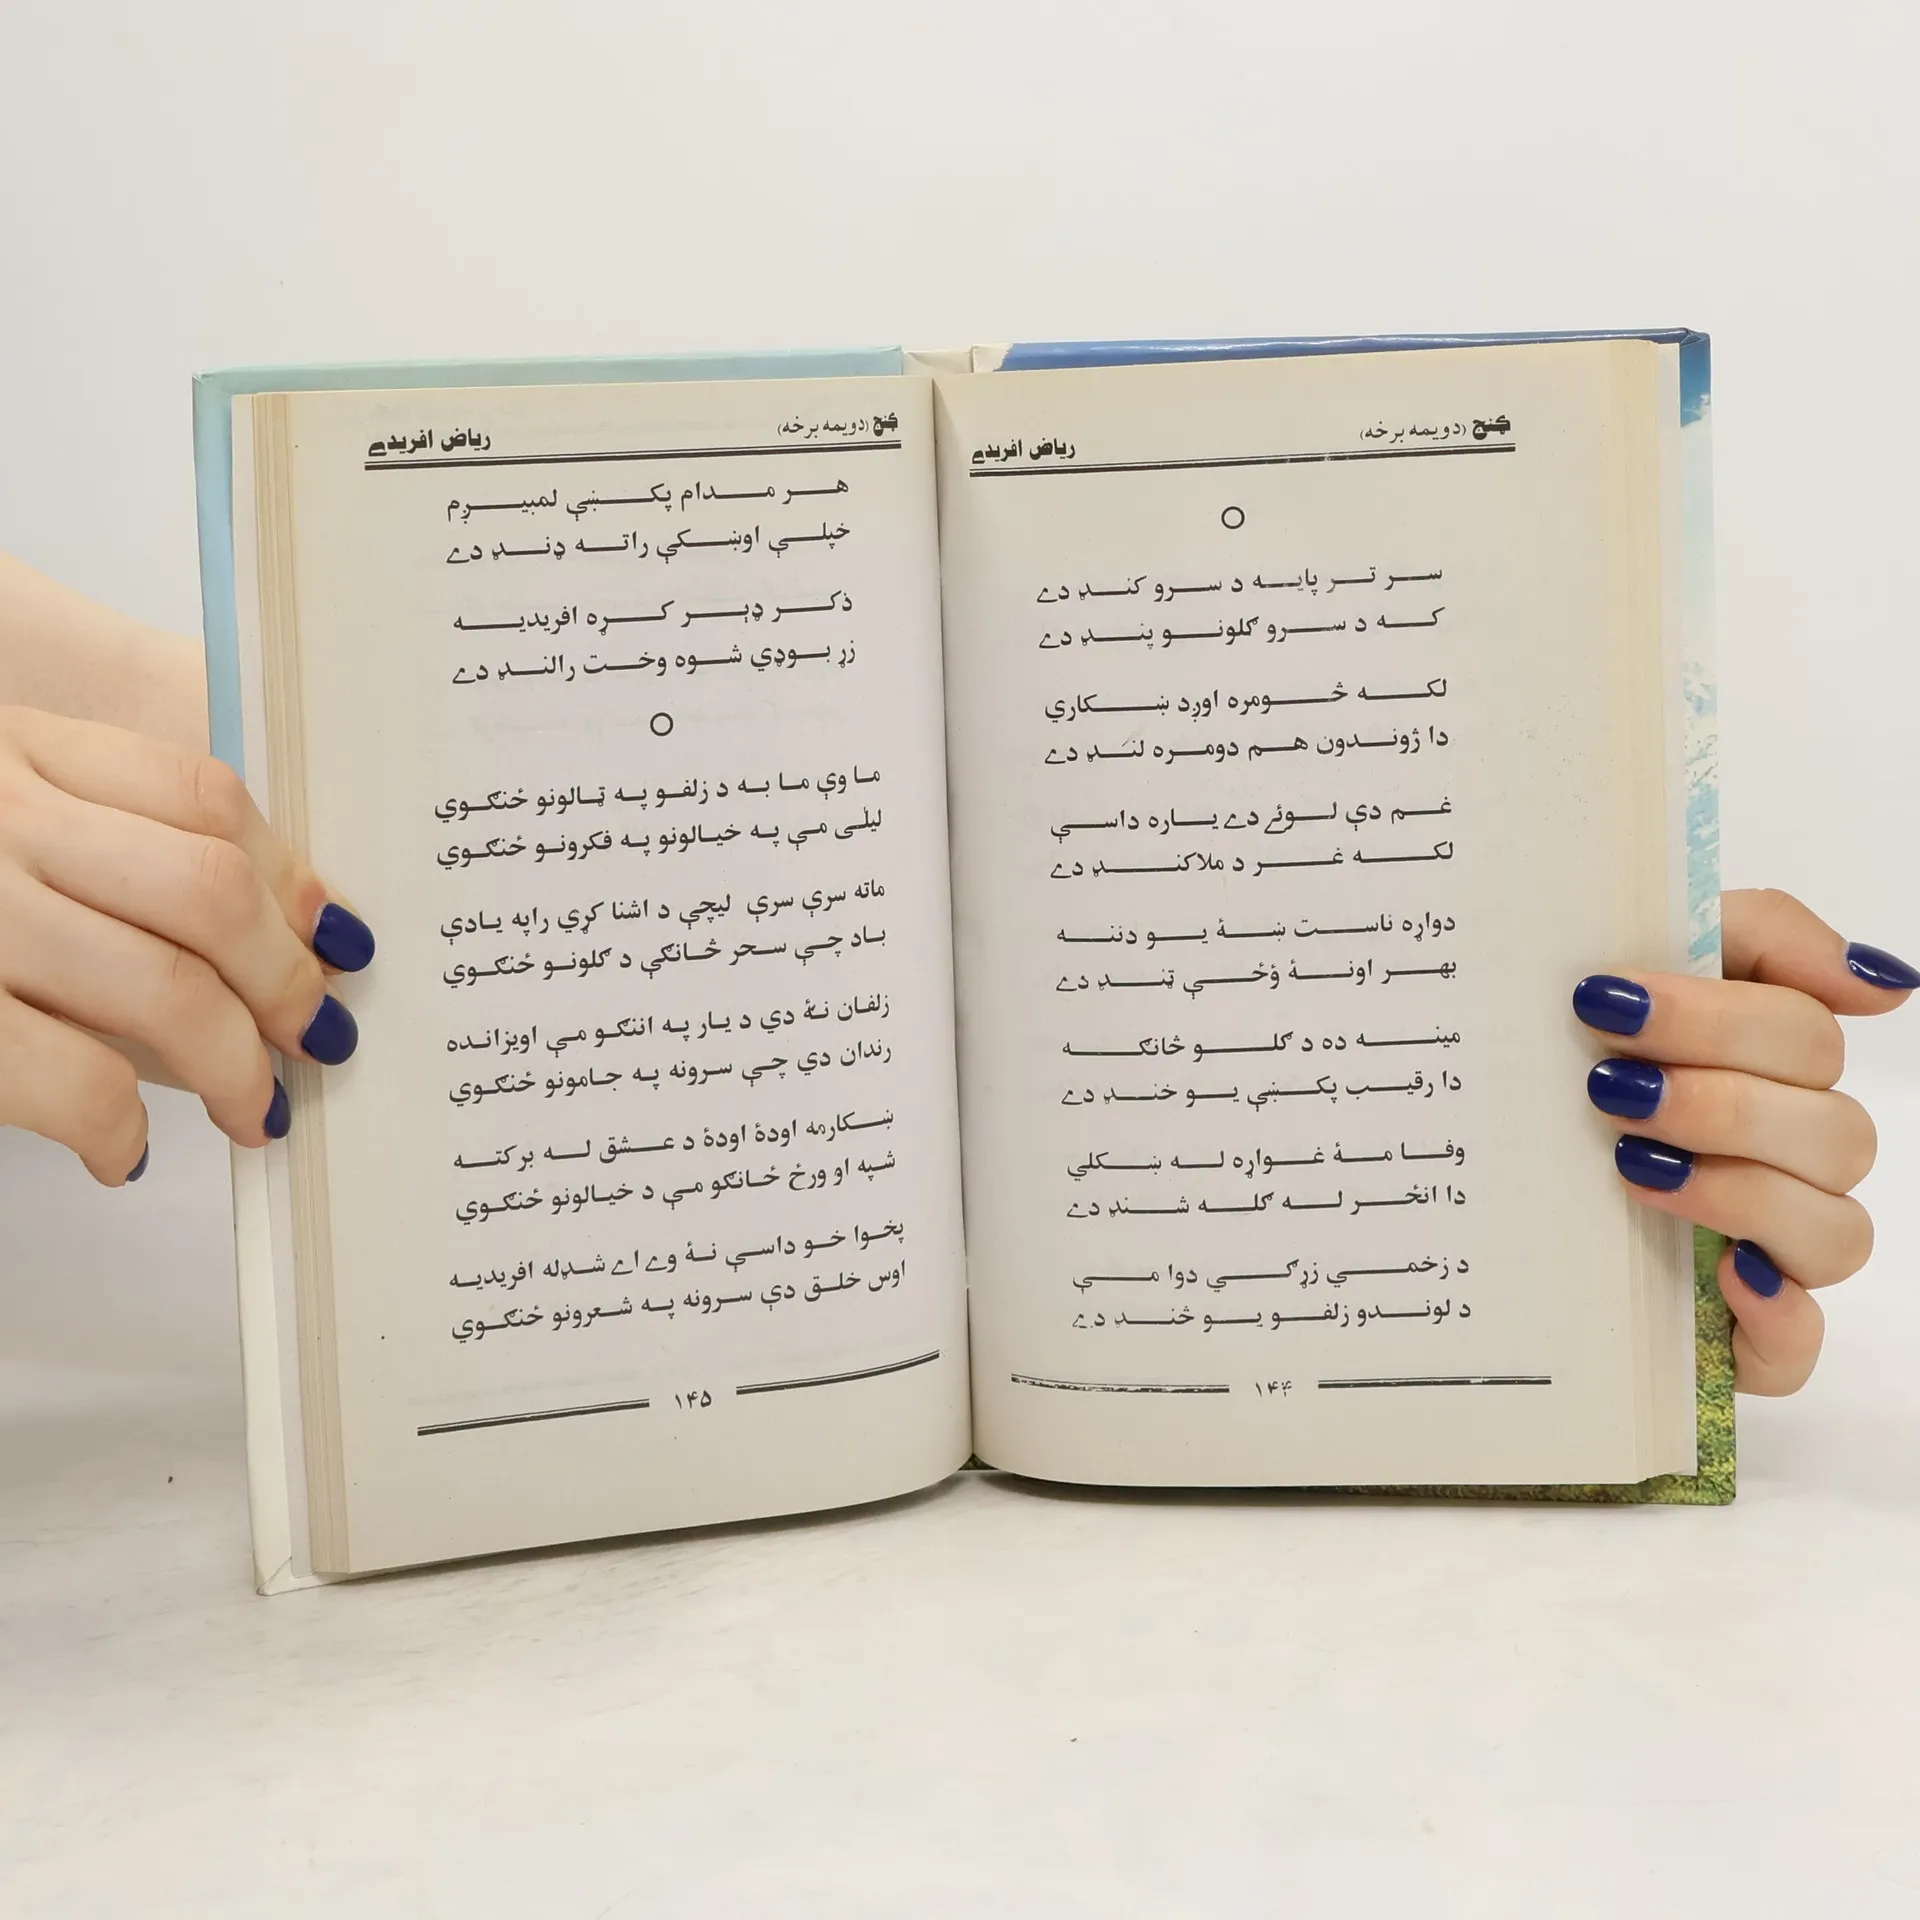 ګنج (دویمه برخه)
ریاض افریدے
سر تر پایه د سرو کنډ دے
که د سرو ګلونو پنډ دے
لکه څومره اوږد ښکاري
دا ژوندون هم دومره لنډ دے
غم دې لوئے دے یاره داسې
لکه غر د ملاکنډ دے
دواړه ناست ښۀ یو دننه
بهر اونۀ ؤځې ټنډ دے
مینه ده د ګلو څانګه
دا رقیب پکښې یو خنډ دے
وفا مۀ غواړه له ښکلي
دا انځر له ګله شنډ دے
د زخمي زړګي دوا مې
د لوندو زلفو یو څنډ دے
۱۴۴
ګنج (دویمه برخه)
ریاض افریدے
هر مدام پکښې لمبیږم
خپلې اوښکې راته ډنډ دے
ذکر ډېر کړه افریدیه
زړ بوډي شوه وخت رالنډ دے
ما وې ما به د زلفو په ټالونو ځنګوي
لیلٰی مې په خیالونو په فکرونو ځنګوي
ماته سرې سرې لیچې د اشنا کړي راپه یادې
باد چې سحر څانګې د ګلونو ځنګوي
زلفان نۀ دي د یار په اننګو مې اویزانده
رندان دي چې سرونه په جامونو ځنګوي
ښکارمه اودۀ اودۀ د عشق له برکته
شپه او ورځ ځانګو مې د خیالونو ځنګوي
پخوا خو داسې نۀ وے اے شډله افریدیه
اوس خلق دې سرونه په شعرونو ځنګوي
۱۴۵